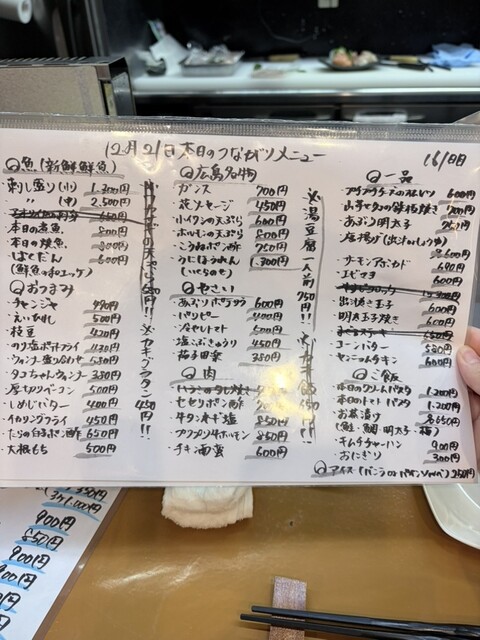 12月21日 本日のつながりメニュー
魚(新鮮鮮魚)
・刺し盛り(小) 1.300円
・〃(中) 2.500円
650円
・本日の煮魚 800円
・本日の焼魚 800円
・ばくだん 600円
(鮮魚の和エッグ)
おつまみ
・チャンジャ 490円
・えいひれ 500円
・枝豆 420円
・のり塩ポテトフライ 430円
・ウィンナー盛り合わせ
・タコちゃんウィンナー 380円
・厚切りベーコン 500円
・しめじバター 400円
・イカリングフライ 450円
・たらの白子ポン酢 650円
・大根もち 500円
※カキグラタン 450円!!
広島名物
・ガンス 700円
・花ソーセージ 450円
・小イワシの天ぷら 600円
・ホルモンの天ぷら 800円
・こうねポン酢 750円
・うにほうれん 1.300円
やさい
・あぶりポテサラ 600円
・バリピー 400円
・冷やしトマト 500円
・塩こぶきゅうり 450円
・茄子田楽 380円
肉
・セセリポン酢
・牛タンネギ塩 850円
・プリプリ牛ホルモン 850円
・チキン南蛮 600円
※湯豆腐一人前 750円!!
一品
600円
・山芋とろろの鉄板焼き 700円
・あぶり明太子 750円
・唐揚げ(出汁 or しょうゆ) 各600円
・サーモンアボカド 690円
・エビマヨ 600円
・出汁巻き玉子 600円
・明太子玉子焼き 600円
・コーンバター 380円
・ヤンニョムチキン 600円
ご飯
・本日のクリームパスタ 1.200円
・本日のトマトパスタ 1.200円
・お茶漬け 各650円
(鮭・鯛・明太子・梅)
・キムチチャーハン 900円
・おにぎり 300円
アイス 250円
900円
850円
900円
900円